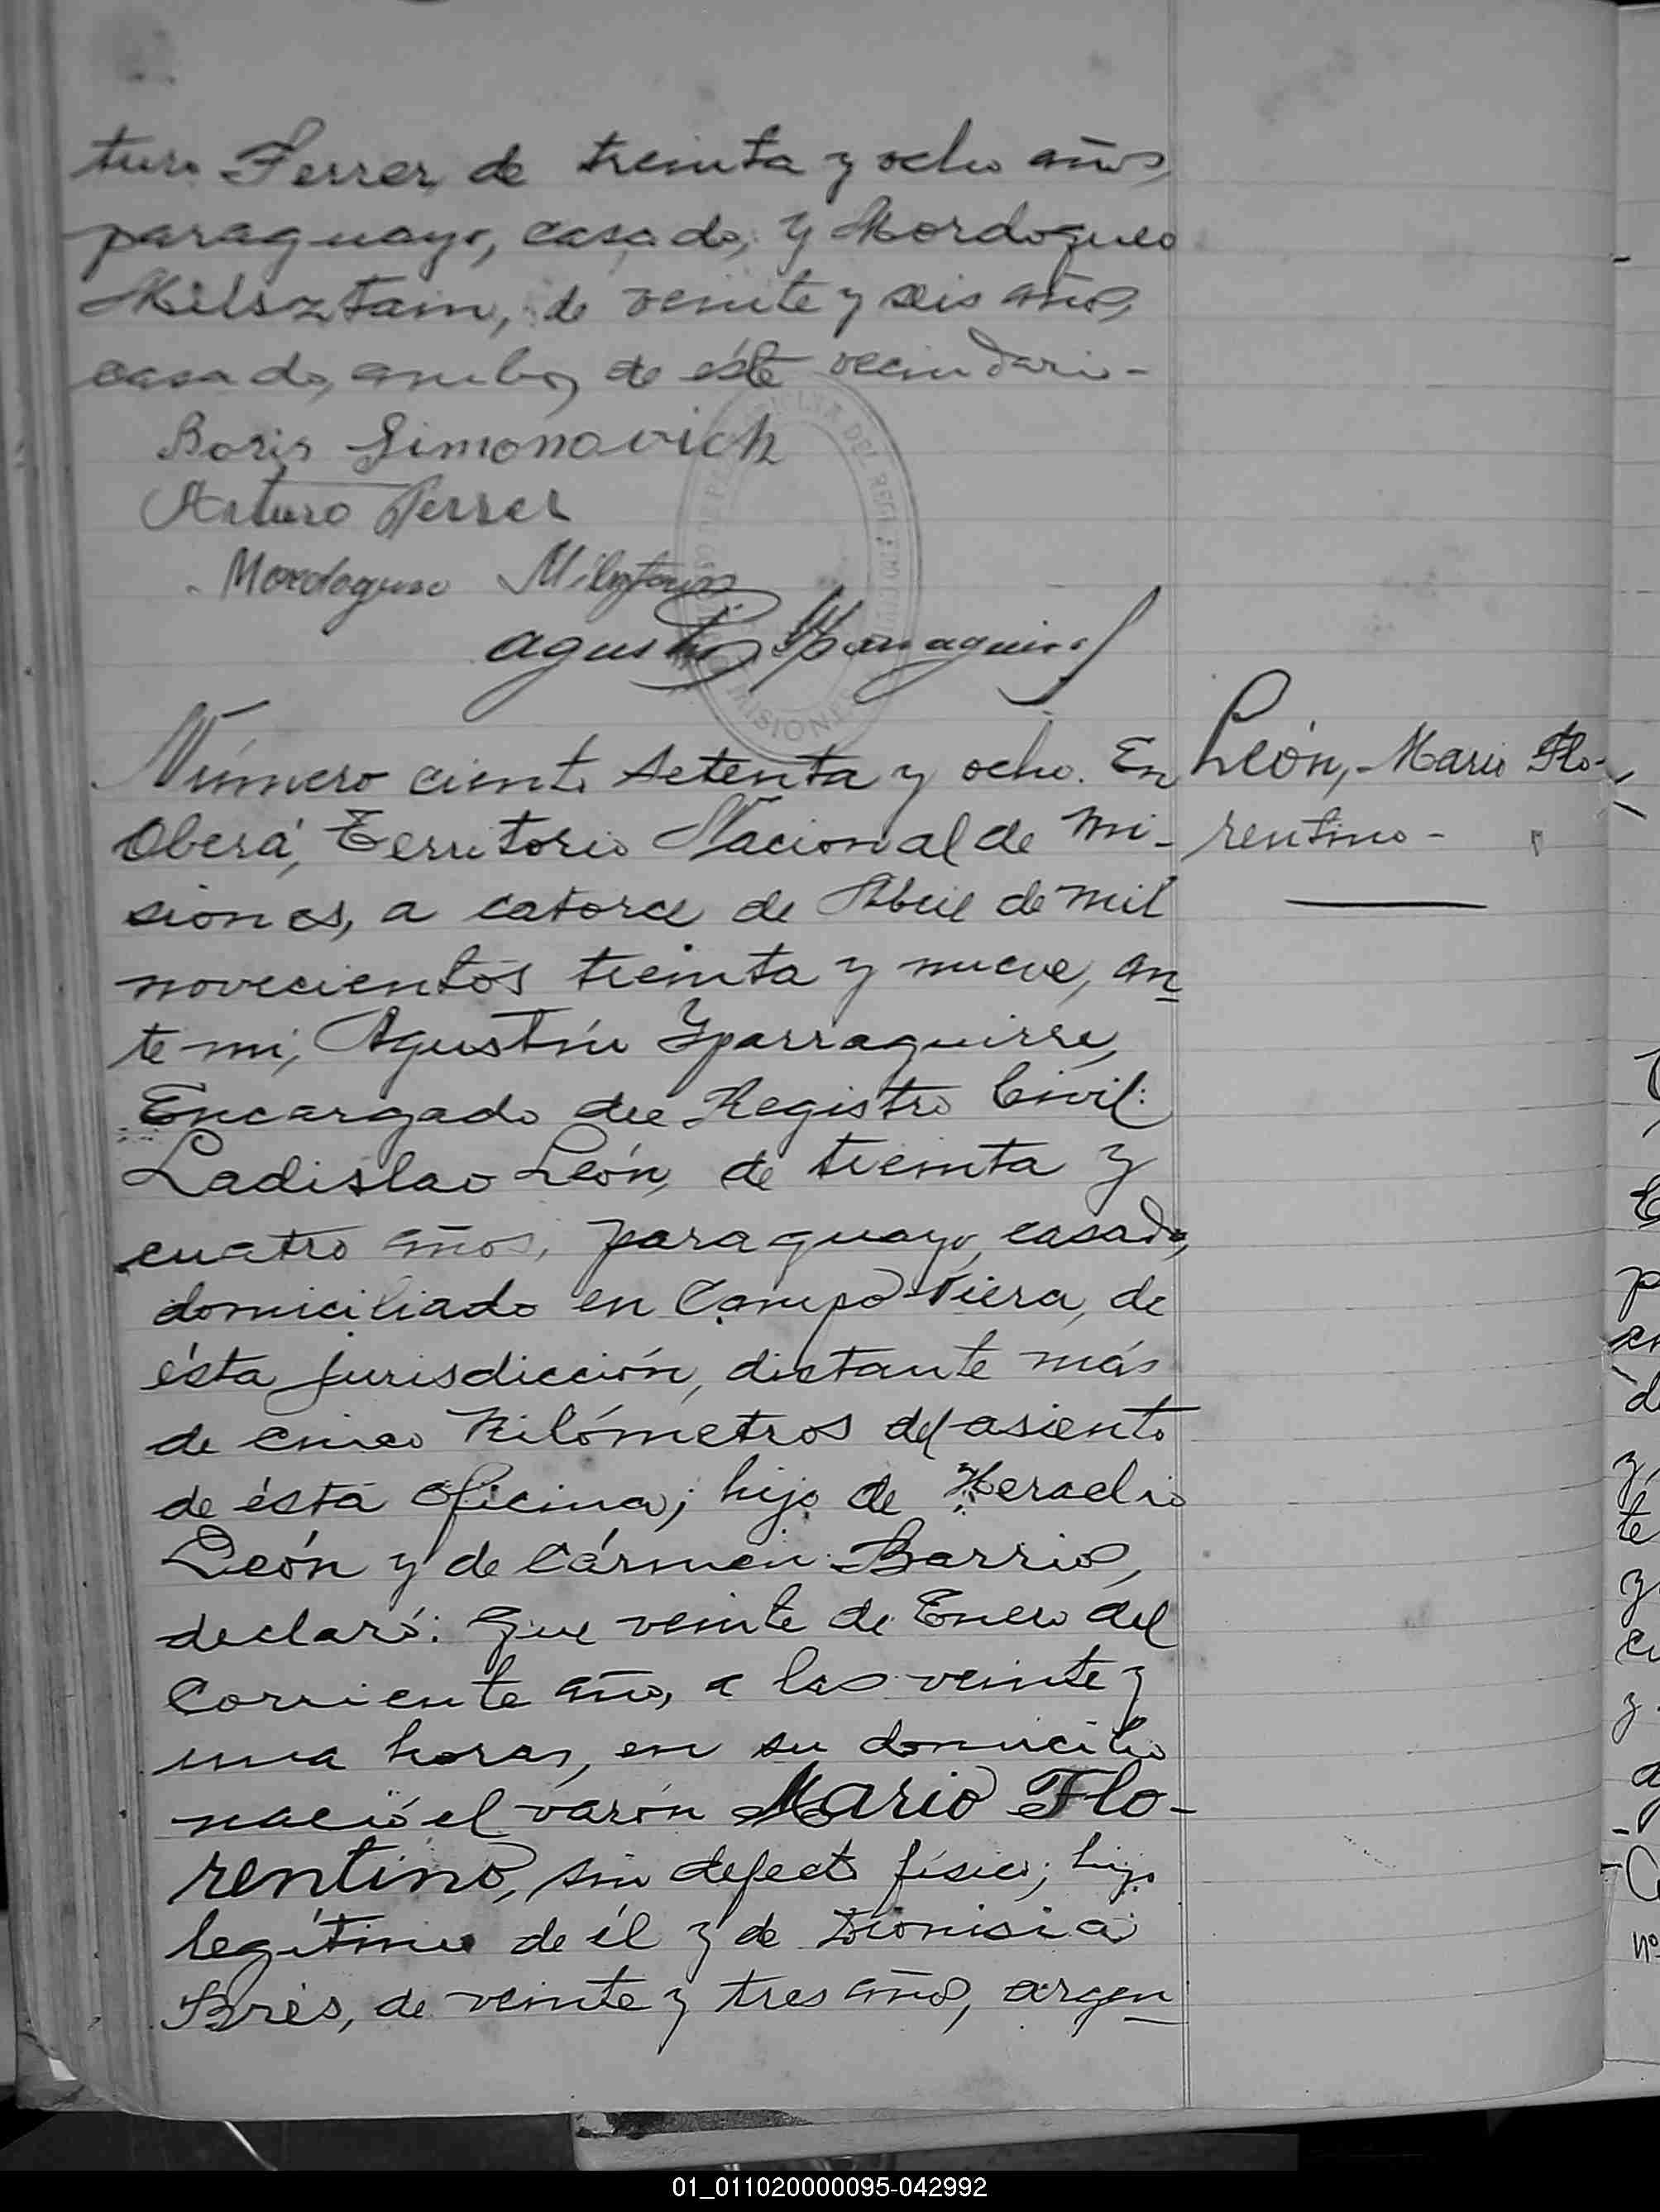 turo Ferrer, de treinta y ocho años,
paraguayo, casado, y Mordoqueo
Milsztain, de veinte y seis años,
casado, ambos de éste vecindario-
Boris Simonovich
Arturo Ferrer
Mordoqueo
Agustín Yparraguirre
Número ciento setenta y ocho. En
León, Mario Flo-
Oberá, Territorio Nacional de Mi-
rentino-
siones, a catorce de Abril de mil
novecientos treinta y nueve, an
te mi, Agustín Yparraguirre,
Encargado del Registro Civil:
Ladislao León, de treinta y
cuatro años, paraguayo, casado,
domiciliado en Campo-Viera, de
ésta jurisdicción, distante más
de cinco Kilómetros del asiento
de ésta Oficina; hijo de Heraclio
León y de Cármen Barrios,
declaró: Que veinte de Enero del
Corriente año, a las veinte y
una horas, en su domicilio
nació el varón Mario Flo-
rentino, sin defecto físico; hijo
legítimo de él y de Dionisia
Brés, de veinte y tres años, argen
REGISTRO CIVIL
MISIONES
01_011020000095-042992